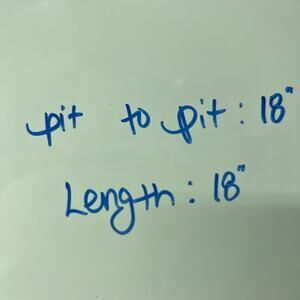 pit to pit : 18"
Length : 18"